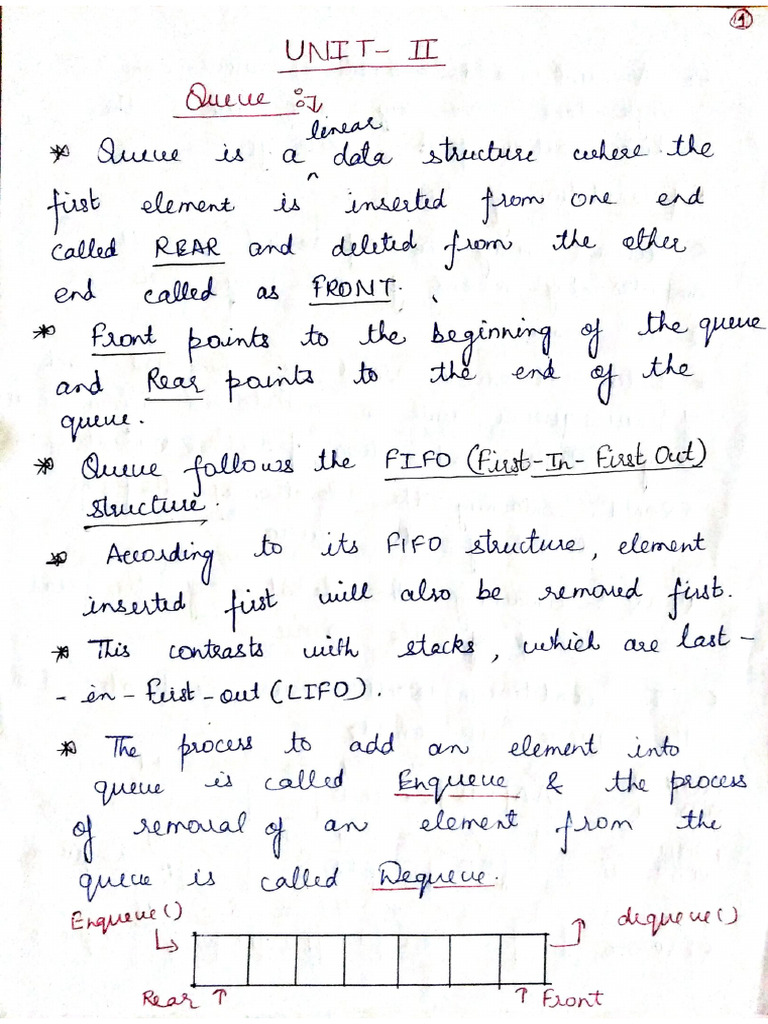 1
UNIT- II
Queue :-
linear
* Queue is a ^ data structure where the
first element is inserted from one end
called REAR and deleted from the other
end called as FRONT.
* Front points to the beginning of the queue
and Rear points to the end of the
queue.
* Queue follows the FIFO (First-In-First Out)
structure.
* According to its FIFO structure, element
inserted first will also be removed first.
* This contrasts with stacks, which are last-
-in-first-out (LIFO).
* The process to add an element into
queue is called Enqueue & the process
of removal of an element from the
queue is called Dequeue.
Enqueue() dequeue()
Rear ↑ ↑ Front